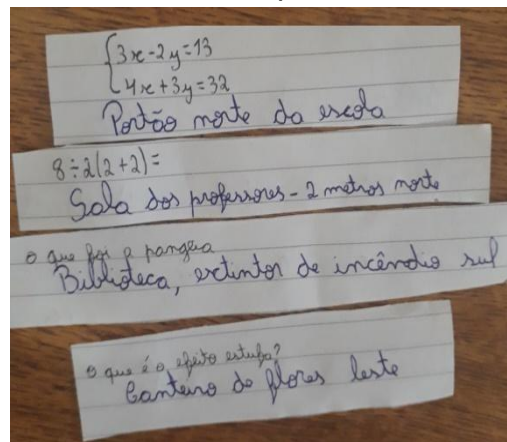 3x-2y=13
4x+3y=32
Portão norte da escola
8÷2(2+2)=
Sala dos professores - 2 metros norte
o que foi a pangeia
Biblioteca, extintor de incêndio sul
o que é o efeito estufa?
Canteiro de flores leste